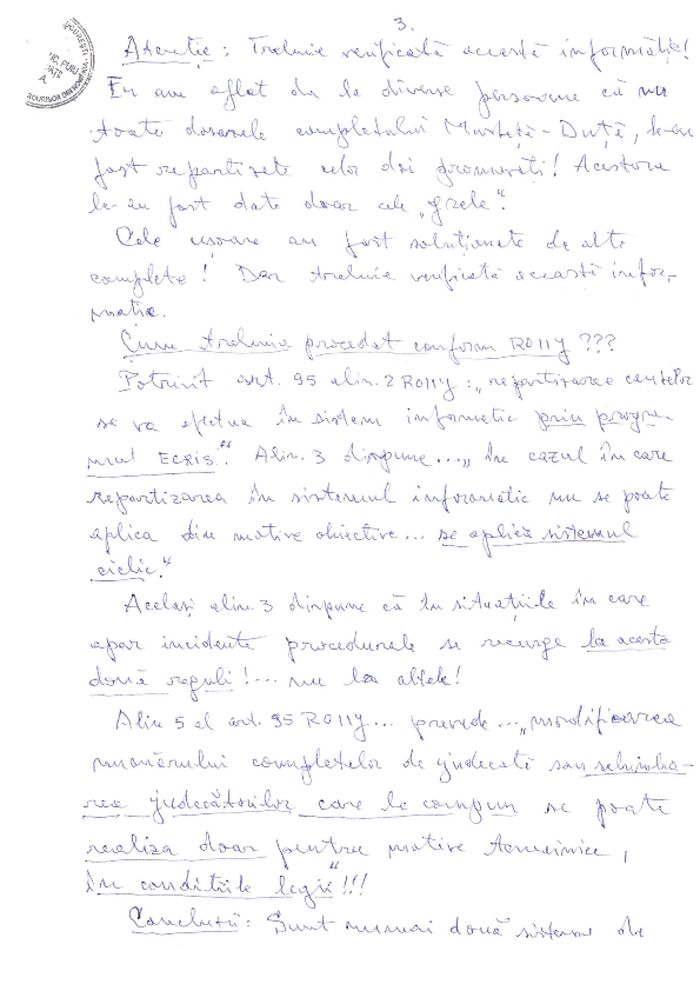 3.
Atenție : Trebuie verificată această informație!
Eu am aflat de la diverse persoane că nu
toate dosarele completului Mustață - Duță, le-au
fost repartizate celor doi promovați! Acestora
le-au fost date doar cele „grele".
Cele ușoare au fost soluționate de alte
complete! Dar trebuie verificată această infor-
mație.
Cum trebuia procedat conform ROIIJ ???
Potrivit art. 95 alin. 2 ROIIJ : „repartizarea cauzelor
se va efectua în sistem informatic prin progra-
mul ECRIS". Alin. 3 dispune ... „În cazul în care
repartizarea în sistemul informatic nu se poate
aplica din motive obiective... se aplică sistemul
ciclic."
Același alin. 3 dispune că în situațiile în care
apar incidente procedurale se recurge la aceste
două reguli! ... nu la altele!
Alin 5 al art. 95 ROIIJ ... prevede ... „modificarea
numărului completelor de judecată sau schimba-
rea judecătorilor care le compun se poate
realiza doar pentru motive temeinice,
în condițiile legii"!!!
Concluzii : Sunt numai două sisteme de